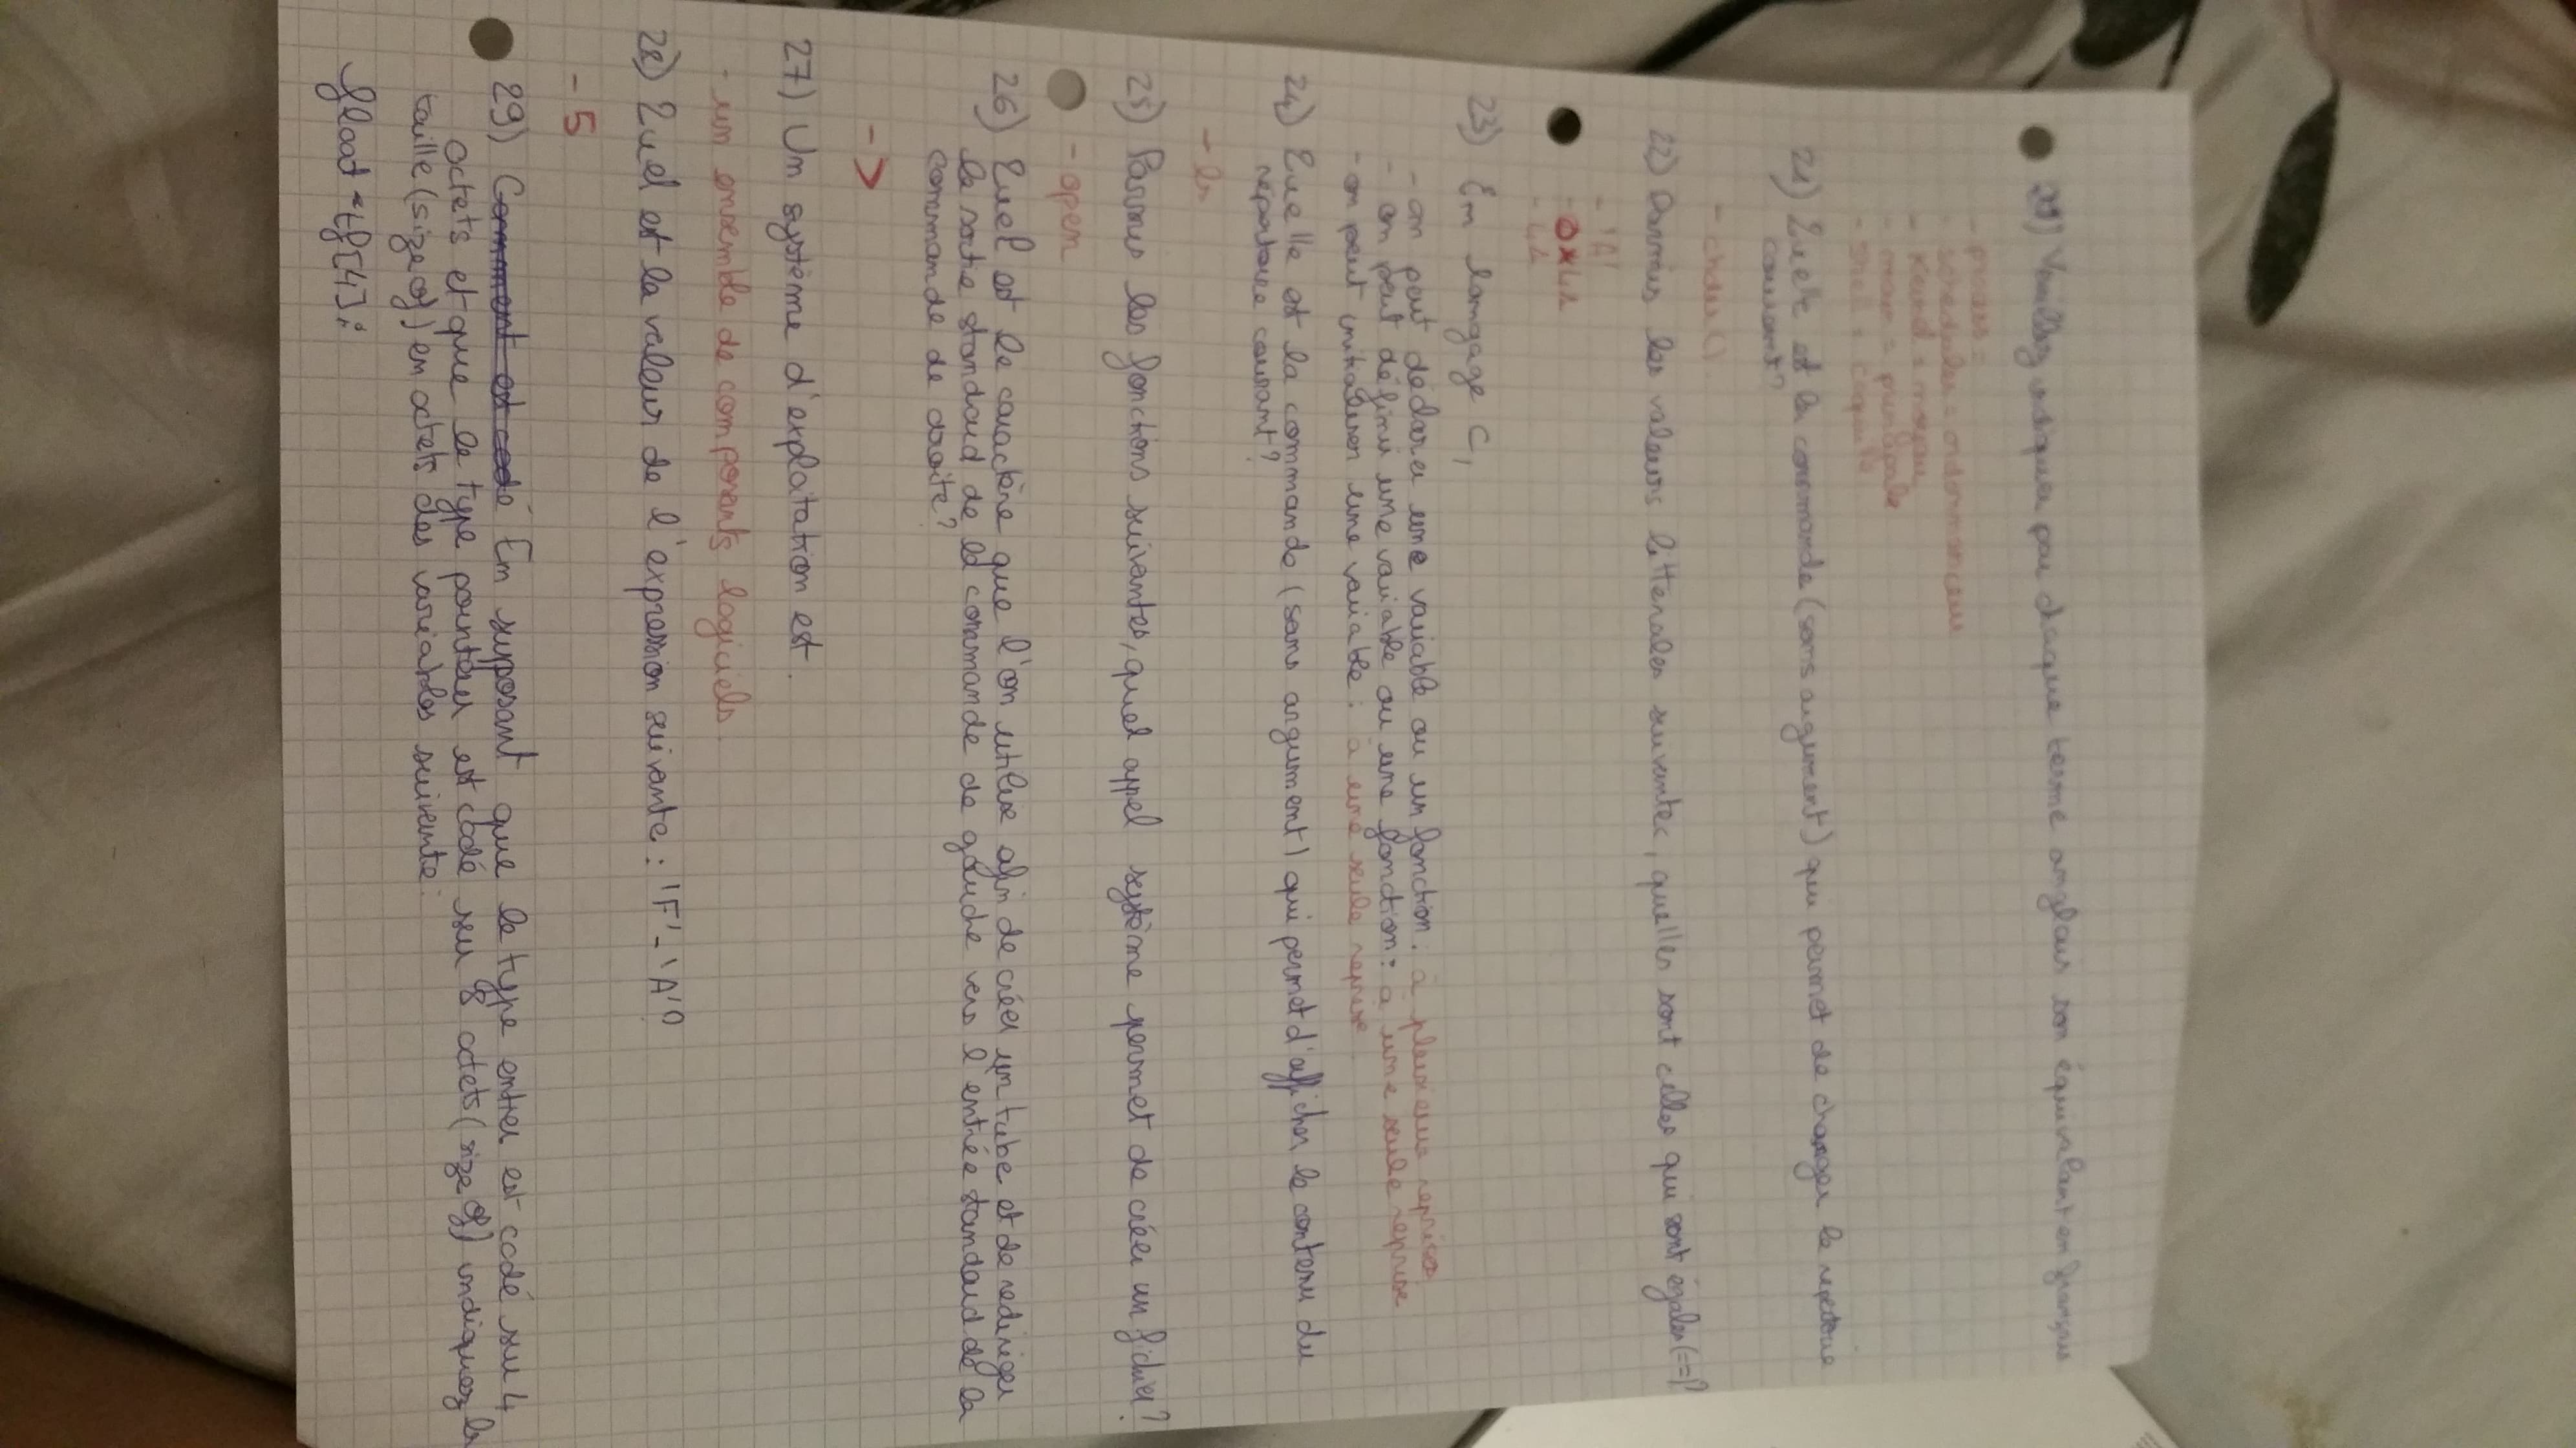 Veuillez indiquer pour chaque terme anglais son équivalant en français
- process =
- scheduler = ordonnanceur
- Kernel = noyau
- main = principale
- Shell = coquille
21) Quelle est la commande (sans argument) qui permet de changer le repertoire
courant?
- chdir()
22) Parmis les valeurs litterales suivantes, quelles sont celles qui sont égales (==)?
- 'A'
- 0x41
23) En langage C,
- on peut déclarer une variable ou un fonction. à plusieurs reprises
- on peut définir une variable ou une fonction: à une seule reprise
- on peut initialiser une variable: à une seule reprise
24) Quelle est la commande (sans argument) qui permet d'afficher le contenu du
repertoire courant?
- ls
25) Parmis les fonctions suivantes, quel appel système permet de créer un fichier?
- open
26) Quel est le caractère que l'on utilise afin de créer un tube et de rediriger
la sortie standard de la commande de gauche vers l'entrée standard de la
commande de droite?
- >
27) Un système d'exploitation est.
- un ensemble de composants logiciels.
28) Quel est la valeur de l'expression suivante: 'F'-'A'?
- 5
29) Comment est codé En supposant que le type entier est codé sur 4
octets et que le type pointeur est codé sur 8 octets (size of) indiquez la
taille (size of) en octets des variables suivante:
float *tf[4];